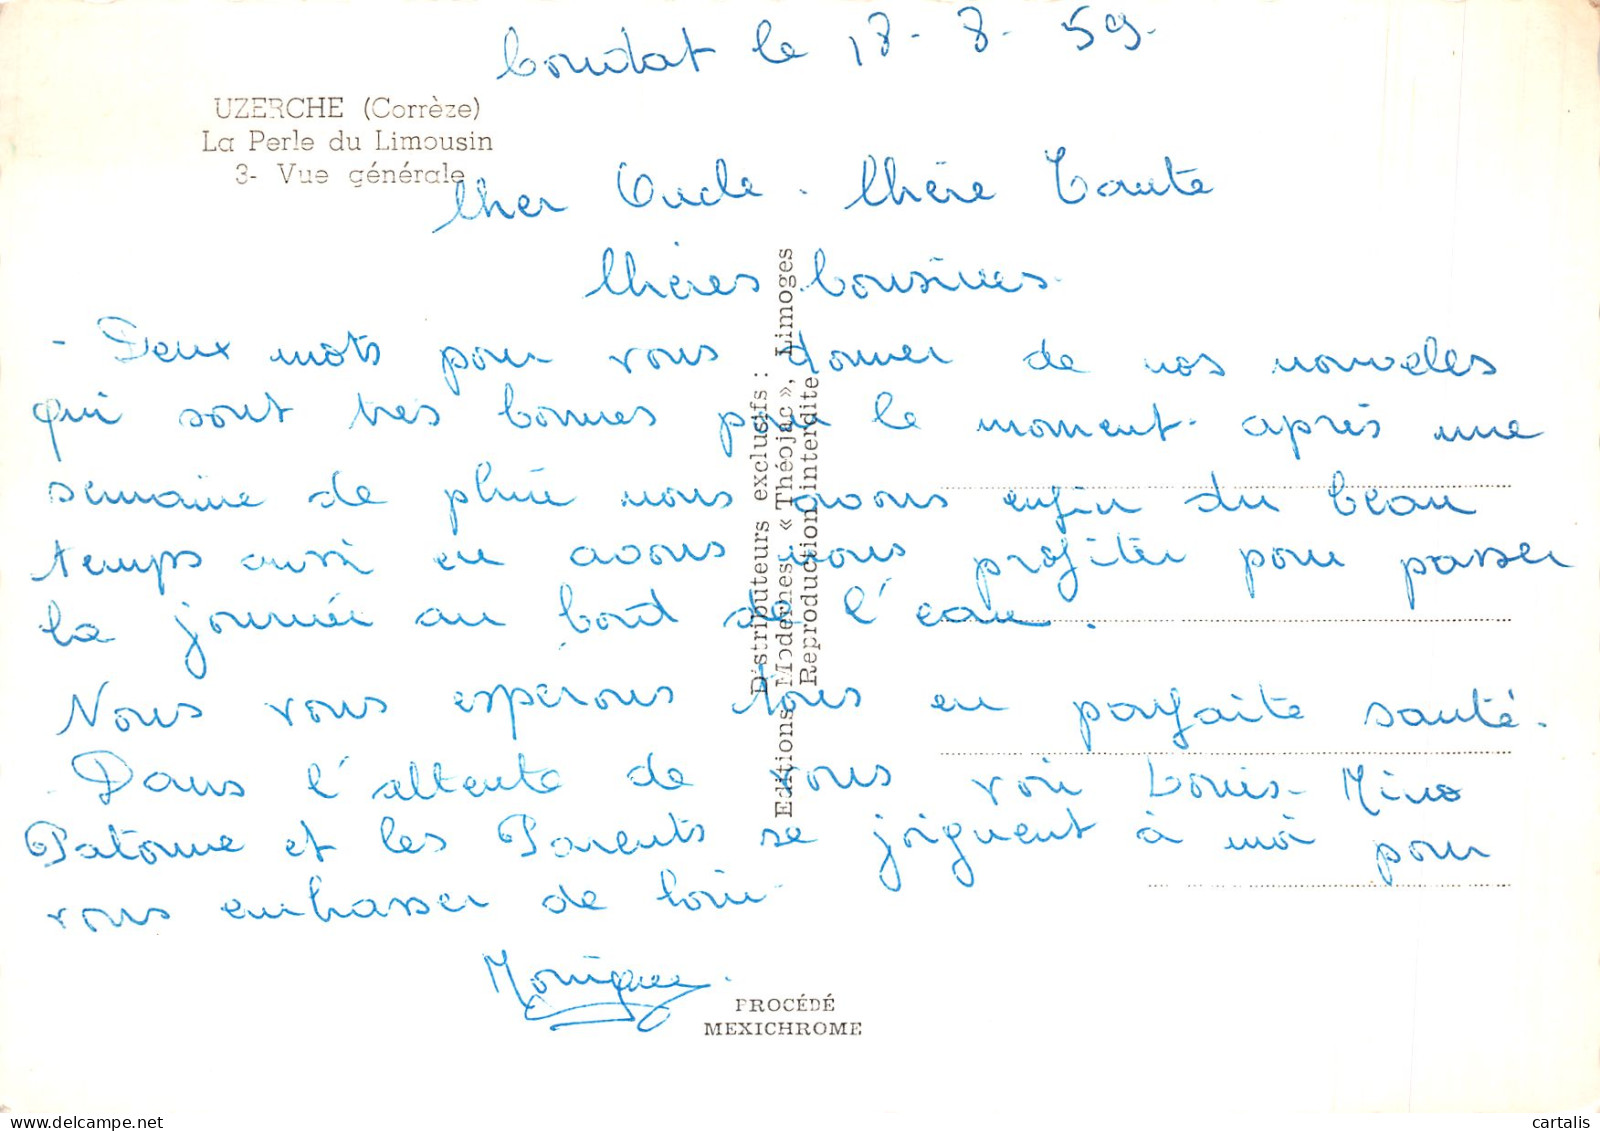 Condat le 18-8-59.
UZERCHE (Corrèze)
La Perle du Limousin
3- Vue générale
Cher Oncle. Chère Tante
Chères Cousines.
- Deux mots pour vous donner de nos nouvelles
qui sont très bonnes pour le moment. après une
semaine de pluie nous avons enfin du beau
temps aussi en avons nous profiter pour passer
la journée au bord de l'eau.
Nous vous espérons tous en parfaite santé.
- Dans l'attente de vous voir Louis - Mino
et les Parents se joignent à moi pour
vous embrasser de loin.
Monique.
Distributeurs exclusifs :
Editions Modernes « Théojac », Limoges
Reproduction interdite
PROCÉDÉ
MEXICHROME
cartalis